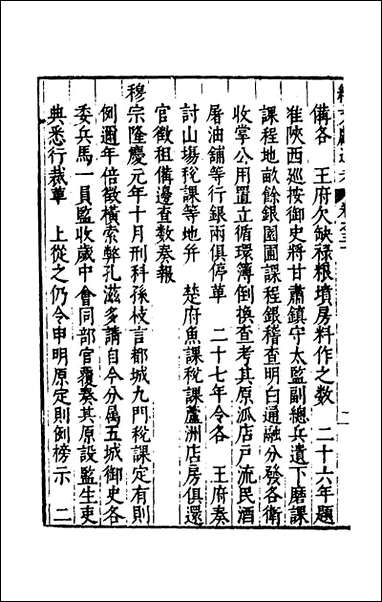 備各　王府欠缺祿粮墳房料作之數　二十六年題
准陜西廵按御史將甘肅鎮守太監副總兵遺下磨課
課程地畝餘銀園圃課程銀稽查明白通融分發各衛
收掌公用置立循環簿倒換查考其原派店戸流民酒
屠油鋪等行銀兩俱停革　二十七年令各　王府奏
討山塲稅課等地并　楚府魚課稅課蘆洲店房俱還
官徵租備邊查數奏報
穆宗隆慶元年十月刑科孫枝言都城九門稅課定有則
例邇年倍徵橫索弊孔滋多請自今分属五城御史各
委兵馬一員監收歲中會同部官覆奏其原設監生吏
典悉行裁革　上從之仍令申明原定則例榜示　二